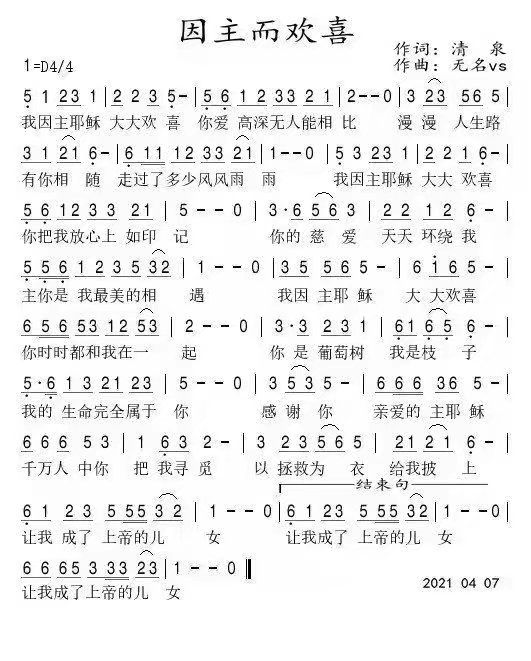 因主而欢喜
作词：清 泉
1=D4/4 作曲：无名vs
5 1 23 1 | 2 2 3 5- | 5 6 12 33 22 | 2--0 | 3 23 56 5 |
我因主耶稣 大大欢 喜 你爱 高深无人能相 比 漫 漫 人生路
3 1 21 6- | 6 11 12 33 21 | 1--0 | 5 3 23 1 | 2 2 35 |
有你相 随 走过了多少风风雨 雨 我因主耶稣 大大 欢喜
5 6 12 33 21 | 5--0 | 3·6 56 3 | 22 12 6- |
你把我放心上 如印 记 你的 慈 爱 天天 环绕 我
5 56 12 35 32 | 1--0 | 35 56 5- | 61 65- |
主你是 我最美的相 遇 我因 主耶 稣 大 大欢喜
656 53 12 53 | 2--0 | 3·3 231 | 61 65 |
你时时都和我在一 起 你 是 葡萄树 我是枝 子
5·6 13 21 23 | 5--0 | 3 53 5 | 666 36 |
我的 生命完全属于 你 感 谢 你 亲爱的 主耶稣
665- | 53 | 1 63 2- | 23 565- | 21 21 6- |
千万人 中你 把 我寻 觅 以 拯救为 衣 给我披 上
结束句
61 23 555 32 | 1--0 | 61 23 555 32 | 1--0 |
让我 成了 上帝的儿 女 让我 成了 上帝的儿 女
66 65 33 23 | 1--0 ‖
让我成了 上帝的儿 女
2021 04 07